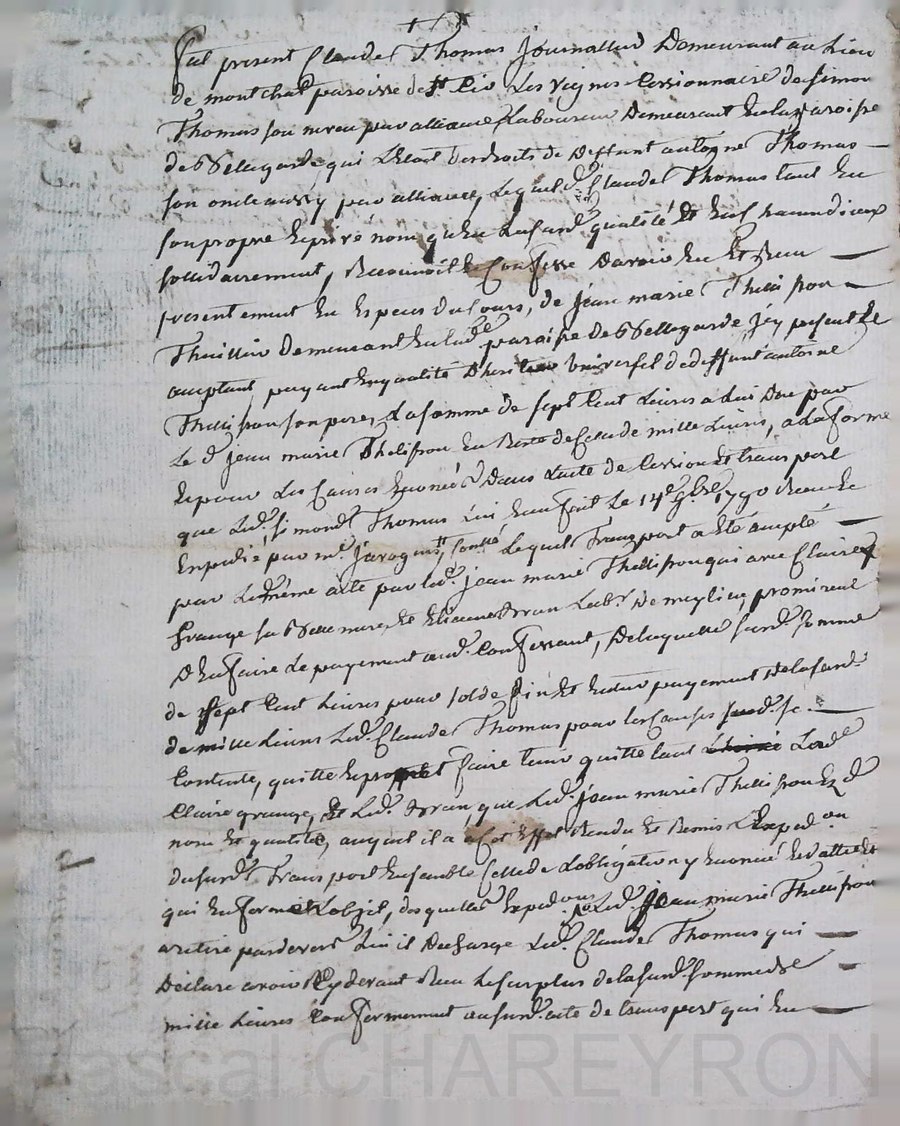 fut present Claude Thomas Journallier Demeurant au Lieu
de montchal paroisse de St Cir Les Vignes Cessionnaire de Simon
Thomas son neveu par alliance, Laboureur Demeurant En La paroisse
de Bellegarde, qui L'Etoit des droits de Deffunt antoine Thomas —
son oncle aussy par alliance, Lequel d. Claude Thomas tant En
son propre Et privé nom qu'En La susd. qualité Et
sollidairement, Reconnoit Et Confesse D'avoir Eu Et Recu —
presentement En Especes du Cours, de Jean marie Thelisson —
Thuillier demeurant En Lad. paroisse de Bellegarde Icy present Et
acceptant, payant En qualité D'heritier Universel de deffunt antoine
Thelisson son pere, La somme de sept Cent Livres a Lui Due par
Le d. Jean marie Thelisson En Reste de Celle de mille Livres, a La forme
Et pour Les Causes Enoncées Dans L'acte de Cession Et transport
que Led. Simond Thomas Lui En a fait Le 14e 9bre 1790 Recu Et
Expedié par me. Lequel Transport a Eté accepté —
par Le même acte par Led. Jean marie Thelisson qui avec Claire
Grange sa Belle mere, Et Etienne Labr. De promirent
D'En faire Le payement aud. Confessant, De Laquelle susd. somme
de sept Cent Livres pour solde fin Et Entier payement De La susd.
de mille Livres Led. Claude Thomas pour les Causes susd. se —
Contente, quitte Et promet faire tenir quitte tant Lad.
Claire grange, Et Led. que Led. Jean marie Thelisson Ez d.
nom Et qualité, auquel il a a Cet Effet Rendu Et Remis L'Exped.on
du susd. Transport Ensemble Celle de L'obligation y Enoncée
qui En forme L'objet, desquelles Expedons Led. Jean marie Thelisson
a retiré pardevers Lui il Decharge Led. Claude Thomas qui —
Declare avoir Cy devant Recu Le surplus de La susd. somme de —
mille Livres Conformement au susd. acte de transport qui En —
Pascal CHAREYRON